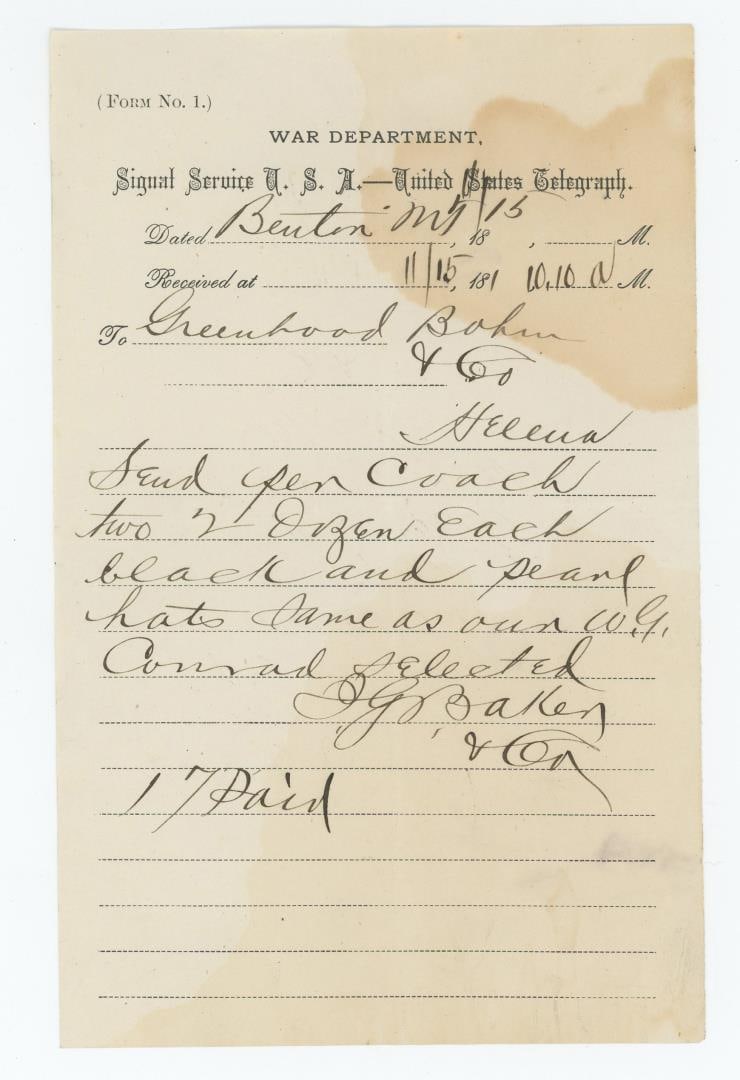 (Form No. 1.)
WAR DEPARTMENT,
Signal Service U. S. A.—United States Telegraph.
Dated Benton MT 11/15, 18 , M.
Received at 11/15, 181 10.10 a M.
To Greenhood Bohm
& Co
Helena
Send per Coach
two 2 Dozen Each
black and pearl
hats same as our W.G.
Conrad selected
I G Baker
& Co
17 Paid